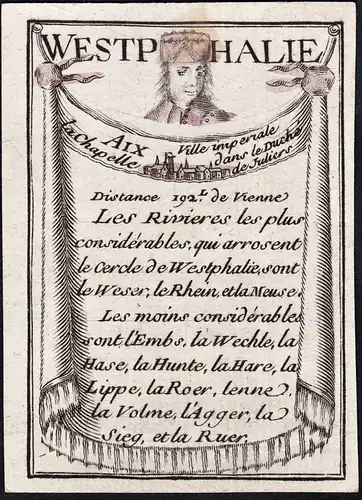 WESTPHALIE
AIX
la Chapelle
Ville imperiale
dans le Duché
de Juliers
Distance 192.L de Vienne
Les Rivieres les plus
considérables, qui arrosent
le Cercle de Westphalie, sont
le Weser, le Rhein, et la Meuse.
Les moins considérables
sont l'Embs, la Wechle, la
Hase, la Hunte, la Hare, la
Lippe, la Roer, lenne,
la Volme, l'Agger, la
Sieg, et la Ruer.